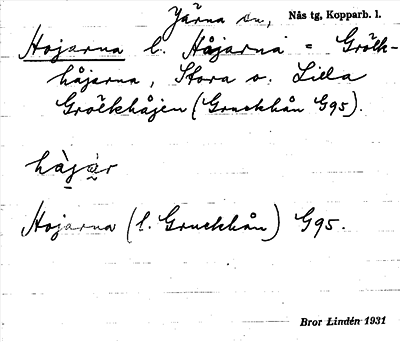 Järna sn, Nås tg, Kopparb. l.
Hojarna l. Håjarna = Grölk-
håjarna, Stora o. Lilla
Grölkhåjen (Gruckhån G95).
hàjár
Hojarna (l. Gruckhån) G95.
Bror Lindén 1931